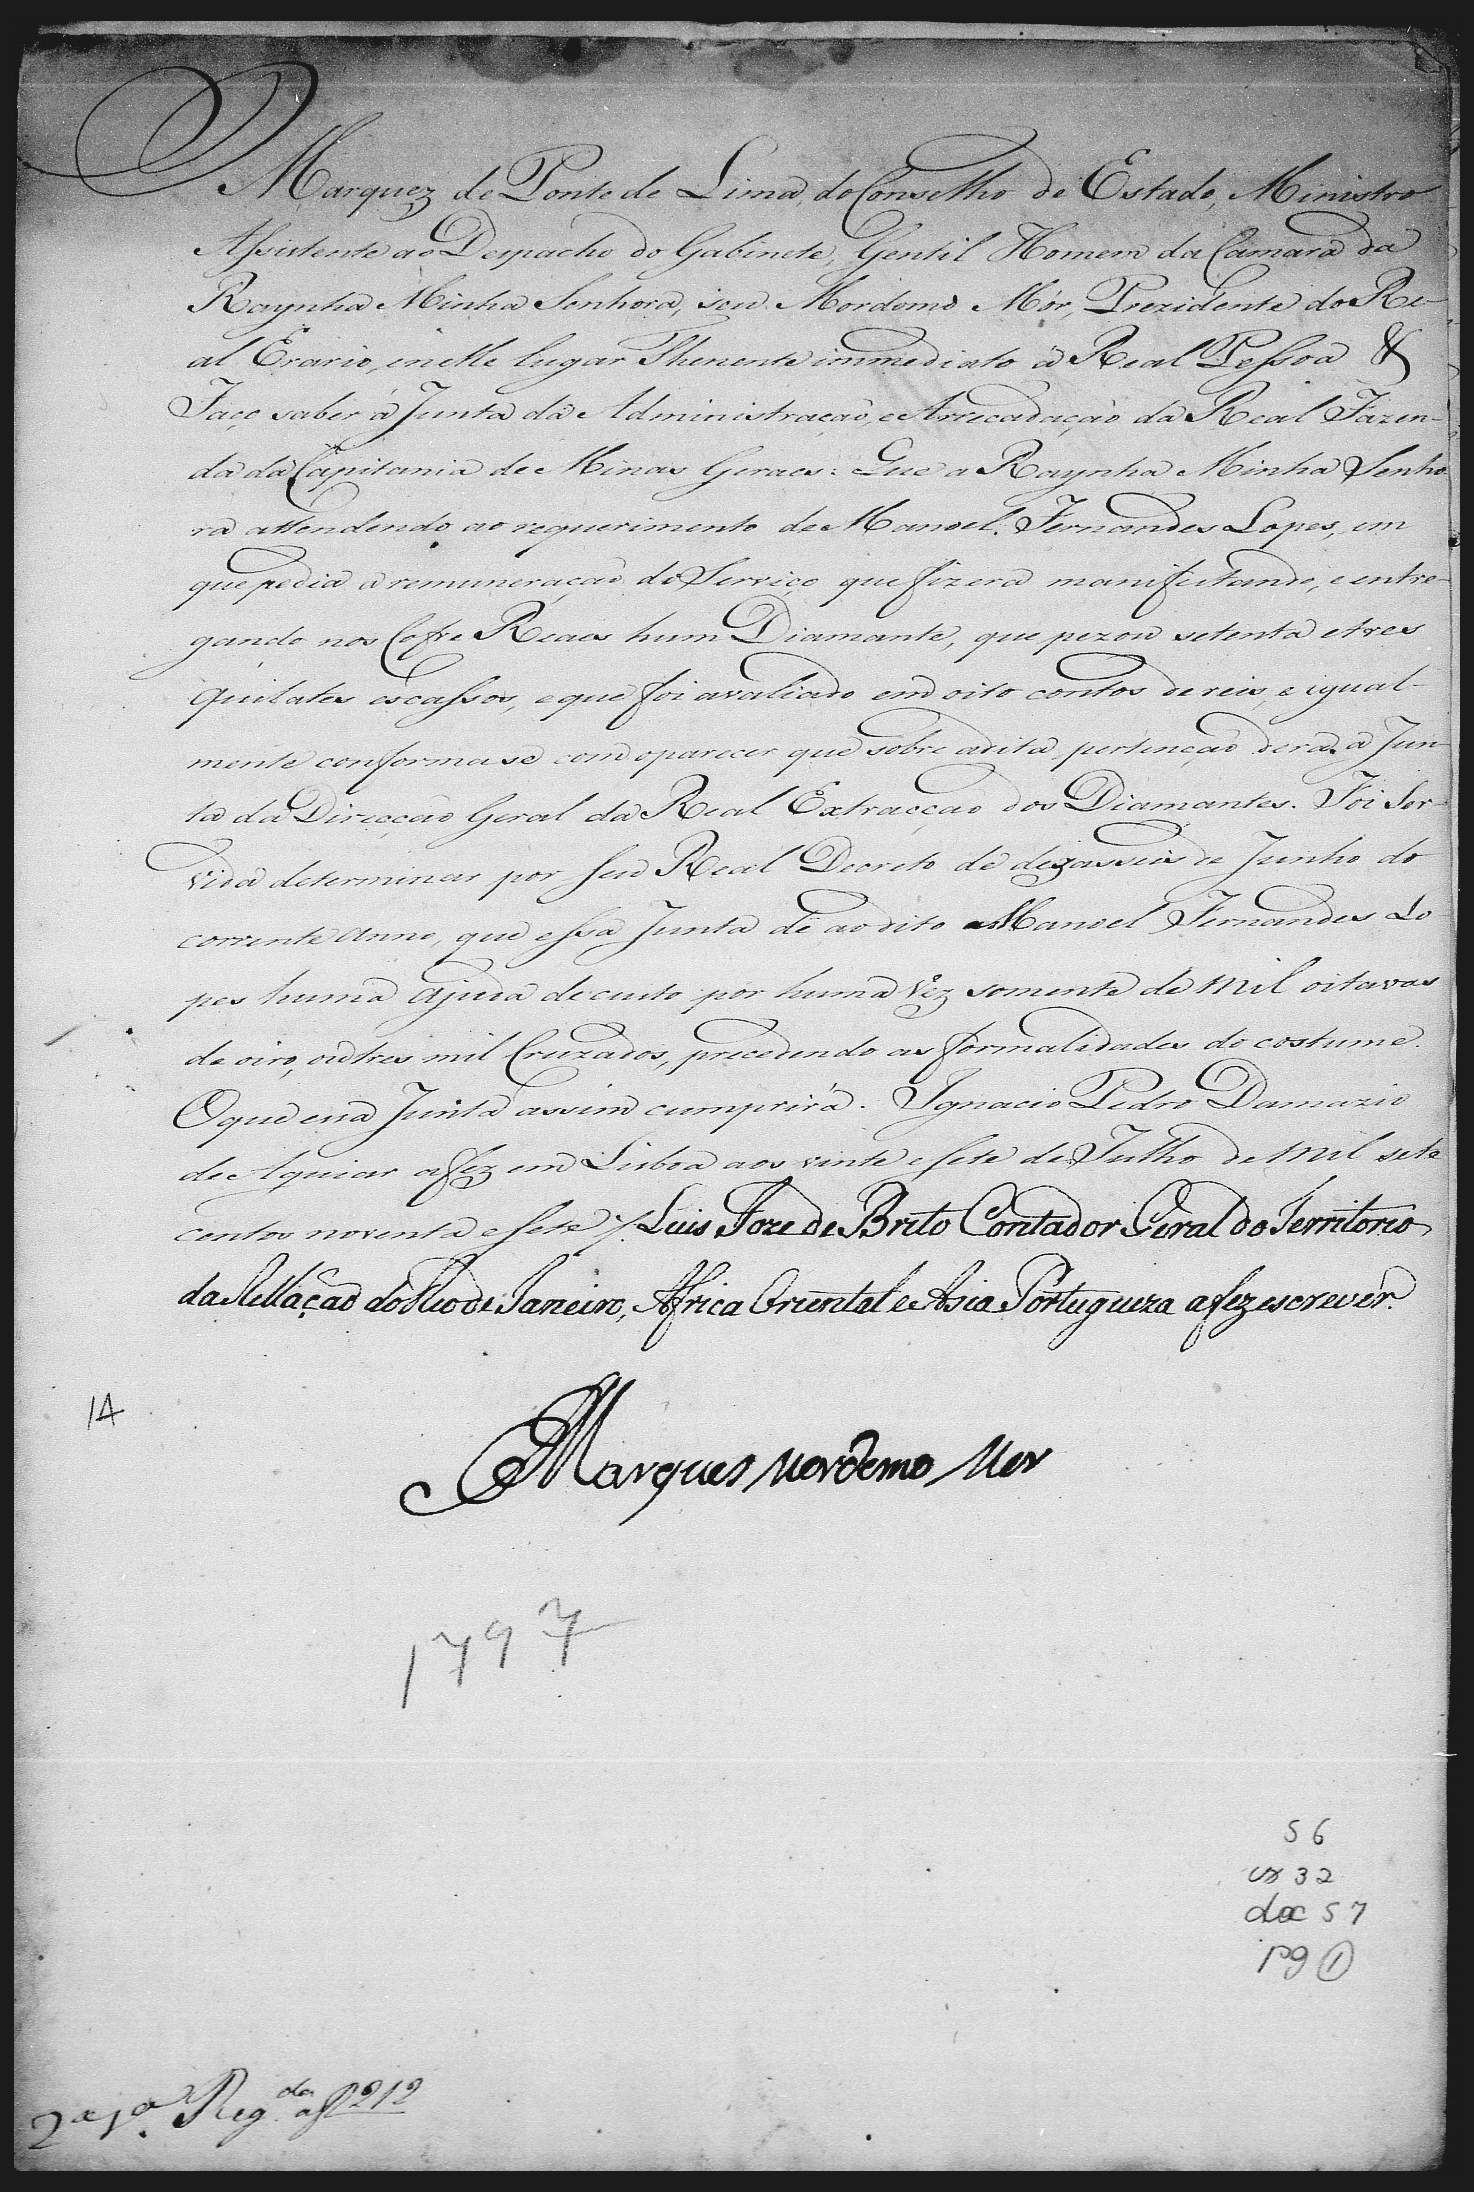 O Marquez de Ponte de Lima, do Conselho de Estado, Ministro
Assistente ao Despacho do Gabinete, Gentil Homem da Camara da
Raynha Minha Senhora, seu Mordomo Mór, Prezidente do Re-
al Erario, e nelle lugar Thenente immediato á Real Pessoa &
Faço saber á Junta da Administração, e Arrecadação da Real Fazen-
da da Capitania de Minas Geraes: Que a Raynha Minha Senho
ra attendendo ao requerimento de Manoel Fernandes Lopes, em
que pedia a remuneração do Serviço que fizera manifestando, e entre-
gando nos Cofre Reaes hum Diamante, que pezou setenta e tres
quilates escassos, e que foi avaliado em oito contos de reis, e igual-
mente conformase com o parecer que sobre a dita pertenção dera a Jun-
ta da Direcção Geral da Real Extracção dos Diamantes. Foi Ser-
vida determinar por seu Real Decreto de dezasseis de Junho do
corrente anno, que essa Junta dê ao dito Manoel Fernandes Lo
pes huma ajuda de custo por huma vez somente de mil oitavas
de oiro, ou tres mil Cruzados, precedendo as formalidades do costume.
O que essa Junta assim cumprirá. Ignacio Pedro Damazio
de Aguiar a fez em Lisboa aos vinte e sete de Julho de mil sete
centos noventa e sete /. Luis Joze de Brito Contador Geral do Territorio
da Rellação do Rio de Janeiro, Africa Oriental e Asia Portugueza a fez escrever.
Marques Mordomo Mor
14
1797
56
cx 32
doc 57
pg 1
2ª 1ª Reg.da a f 212